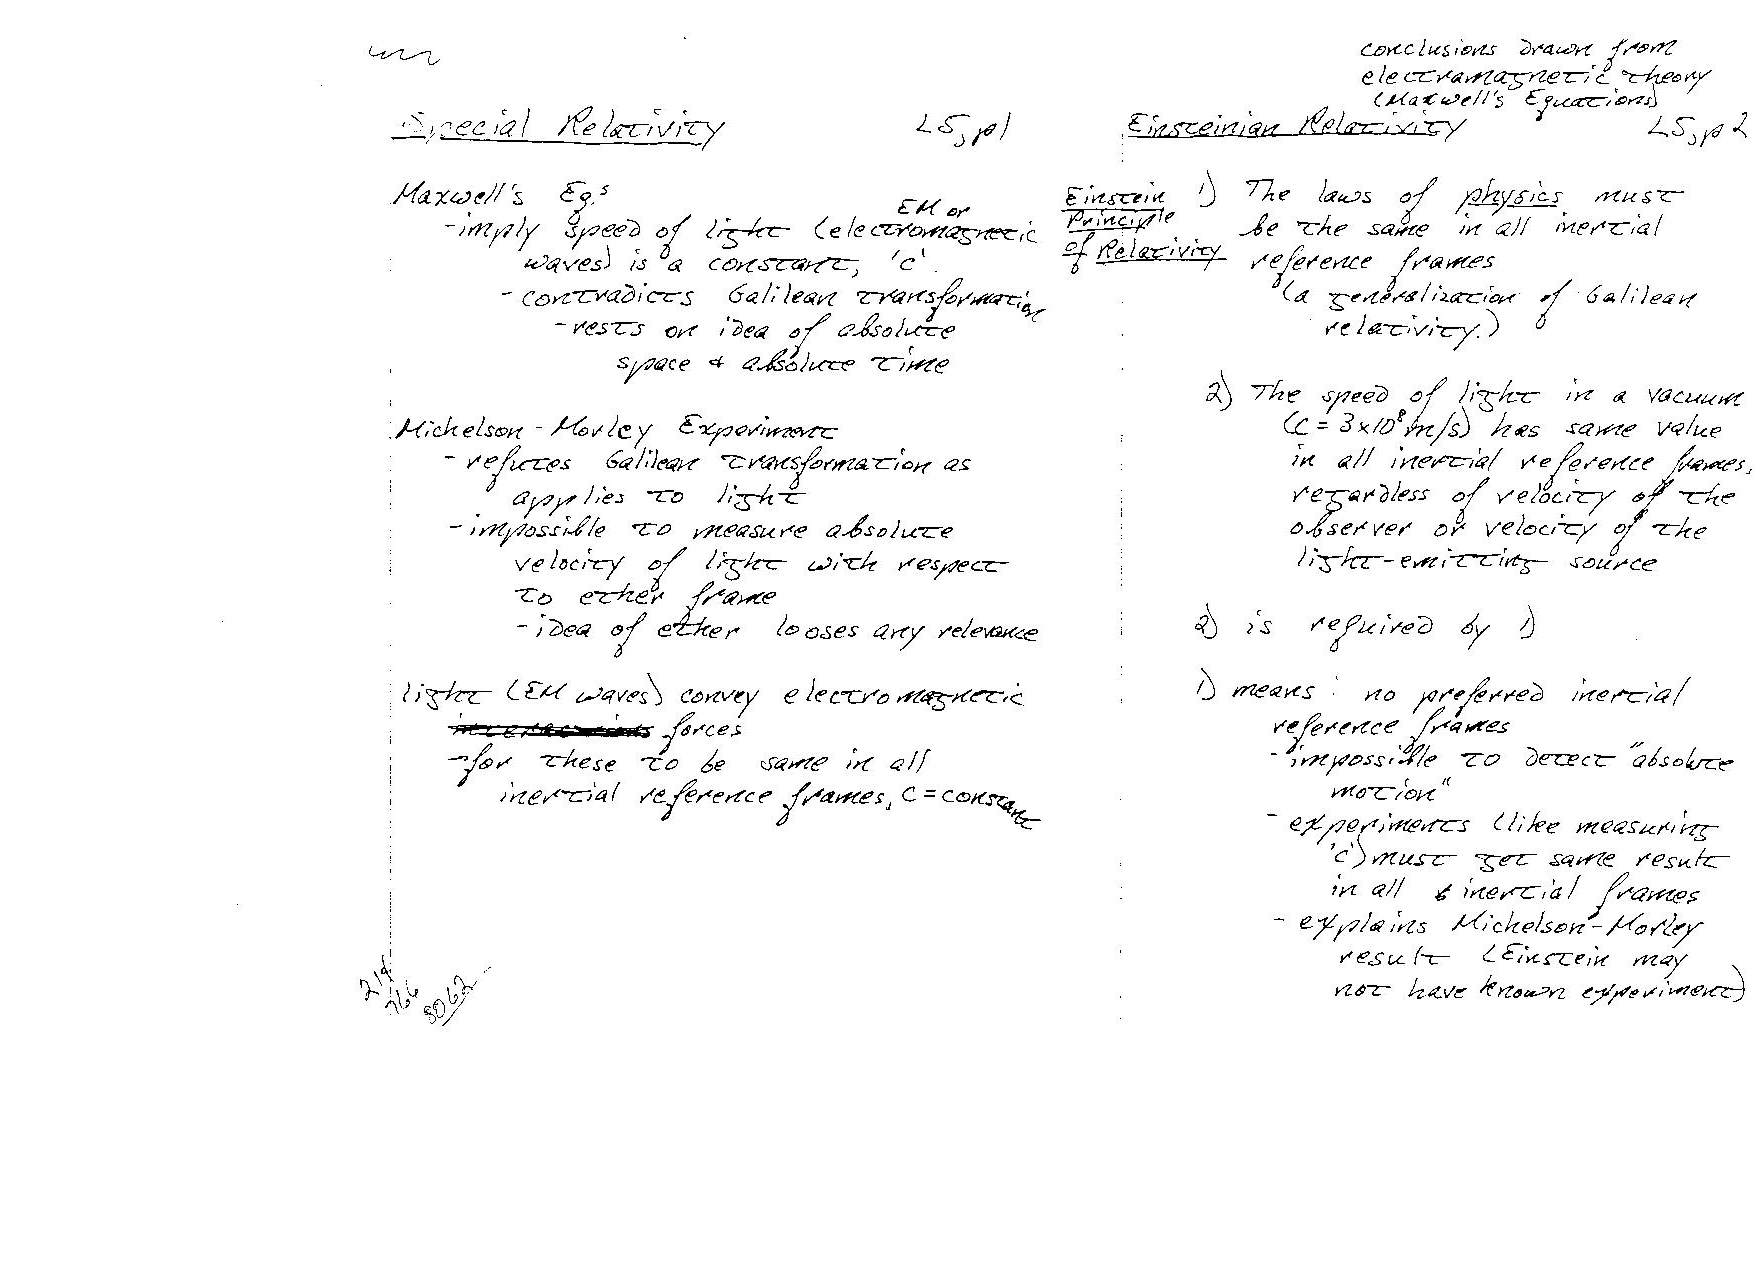 Special Relativity L5, p1
Maxwell's Eq.s
EM or
- imply speed of light (electromagnetic
waves) is a constant, 'c'.
- contradicts Galilean transformation
- rests on idea of absolute
space & absolute time
Michelson - Morley Experiment
- refutes Galilean transformation as
applies to light
- impossible to measure absolute
velocity of light with respect
to ether frame
- idea of ether looses any relevance
light (EM waves) convey electromagnetic
forces
- for these to be same in all
inertial reference frames, c = constant
214
766
8062
conclusions drawn from
electramagnetic theory
(Maxwell's Equations)
Einsteinian Relativity L5, p2
Einstein
Principle
of Relativity
1) The laws of physics must
be the same in all inertial
reference frames
(a generalization of Galilean
relativity.)
2) The speed of light in a vacuum
(c = 3x10⁸ m/s) has same value
in all inertial reference frames,
regardless of velocity of the
observer or velocity of the
light-emitting source
2) is required by 1)
1) means: no preferred inertial
reference frames
- impossible to detect "absolute
motion"
- experiments (like measuring
'c') must get same result
in all inertial frames
- explains Michelson-Morley
result (Einstein may
not have known experiment)